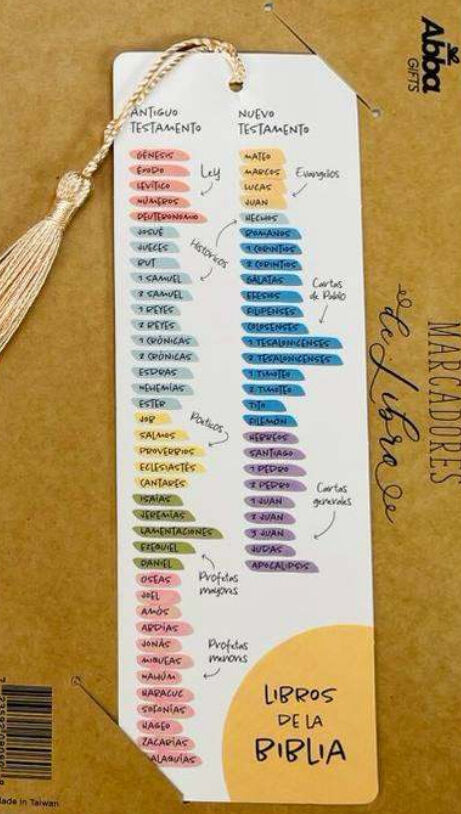 Abba
GIFTS
MARCADORES
de Libro
ANTIGUO
TESTAMENTO
GÉNESIS
ÉXODO
LEVÍTICO
NÚMEROS
DEUTERONOMIO
Ley
JOSUÉ
JUECES
RUT
1 SAMUEL
2 SAMUEL
1 REYES
2 REYES
1 CRÓNICAS
2 CRÓNICAS
ESDRAS
NEHEMÍAS
ESTER
Históricos
JOB
SALMOS
PROVERBIOS
ECLESIASTÉS
CANTARES
Poéticos
ISAÍAS
JEREMÍAS
LAMENTACIONES
EZEQUIEL
DANIEL
Profetas
mayores
OSEAS
JOEL
AMÓS
ABDÍAS
JONÁS
MIQUEAS
NAHÚM
HABACUC
SOFONÍAS
HAGEO
ZACARÍAS
ALAQUÍAS
Profetas
menores
NUEVO
TESTAMENTO
MATEO
MARCOS
LUCAS
JUAN
Evangelios
HECHOS
ROMANOS
1 CORINTIOS
2 CORINTIOS
GÁLATAS
EFESIOS
FILIPENSES
COLOSENSES
1 TESALONICENSES
2 TESALONICENSES
1 TIMOTEO
2 TIMOTEO
TITO
FILEMÓN
Cartas
de Pablo
HEBREOS
SANTIAGO
1 PEDRO
2 PEDRO
1 JUAN
2 JUAN
3 JUAN
JUDAS
APOCALIPSIS
Cartas
generales
LIBROS
DE LA
BIBLIA
ade in Taiwan